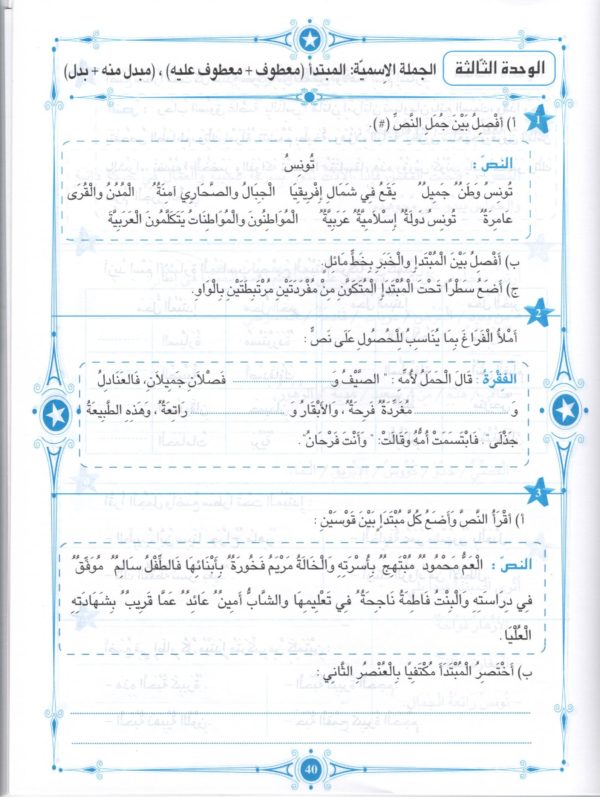 الوحدة الثالثة
الجملة الإسميّة: المبتدأ (معطوف + معطوف عليه) ، (مبدل منه + بدل)
1
أ) أَفْصِلُ بَيْنَ جُمَلِ النَّصِّ (#).
النص :
تُونِسُ
تُونِسُ وَطَنٌ جَمِيلٌ يَقَعُ فِي شَمَالِ إِفْرِيقِيَا الْجِبَالُ والصَّحَارِي آمِنَةٌ الْمُدُنُ وَالْقُرَى
عَامِرَةٌ تُونِسُ دَوْلَةٌ إِسْلَامِيَّةٌ عَرَبِيَّةٌ الْمُوَاطِنُونَ وَالْمُوَاطِنَاتُ يَتَكَلَّمُونَ الْعَرَبِيَّةَ
ب) أَفْصِلُ بَيْنَ الْمُبْتَدَإِ وَالْخَبَرِ بِخَطٍّ مَائِلٍ.
ج) أَضَعُ سَطْرًا تَحْتَ الْمُبْتَدَإِ الْمُتَكَوِّنِ مِنْ مُفْرَدَتَيْنِ مُرْتَبِطَتَيْنِ بِالْوَاوِ.
2
أَمْلَأُ الْفَرَاغَ بِمَا يُنَاسِبُ لِلْحُصُولِ عَلَى نَصٍّ :
الفَقْرَةُ : قَالَ الْحَمَلُ لِأُمِّهِ : " الصَّيْفُ وَ ............ فَصْلَانِ جَمِيلَانِ، فَالْعَنَادِلُ
وَ............ مُغَرِّدَةٌ فَرِحَةٌ، وَالْأَبْقَارُ وَ............ رَاتِعَةٌ، وَهَذِهِ الطَّبِيعَةُ
جَذْلَى". فَابْتَسَمَتْ أُمُّهُ وَقَالَتْ: " وَأَنْتَ فَرْحَانُ".
3
أ) أَقْرَأُ النَّصَّ وَأَضَعُ كُلَّ مُبْتَدَإٍ بَيْنَ قَوْسَيْنِ :
النص : الْعَمُّ مَحْمُودٌ مُبْتَهِجٌ بِأُسْرَتِهِ وَالْخَالَةُ مَرْيَمُ فَخُورَةٌ بِأَبْنَائِهَا فَالطِّفْلُ سَالِمٌ مُوَفَّقٌ
فِي دِرَاسَتِهِ وَالْبِنْتُ فَاطِمَةُ نَاجِحَةٌ فِي تَعْلِيمِهَا والشَّابُّ أَمِينٌ عَائِدٌ عَمَّا قَرِيبٌ بِشَهَادَتِهِ
الْعُلْيَا.
ب) أَخْتَصِرُ الْمُبْتَدَأَ مُكْتَفِيًا بِالْعُنْصُرِ الثَّانِي :
40